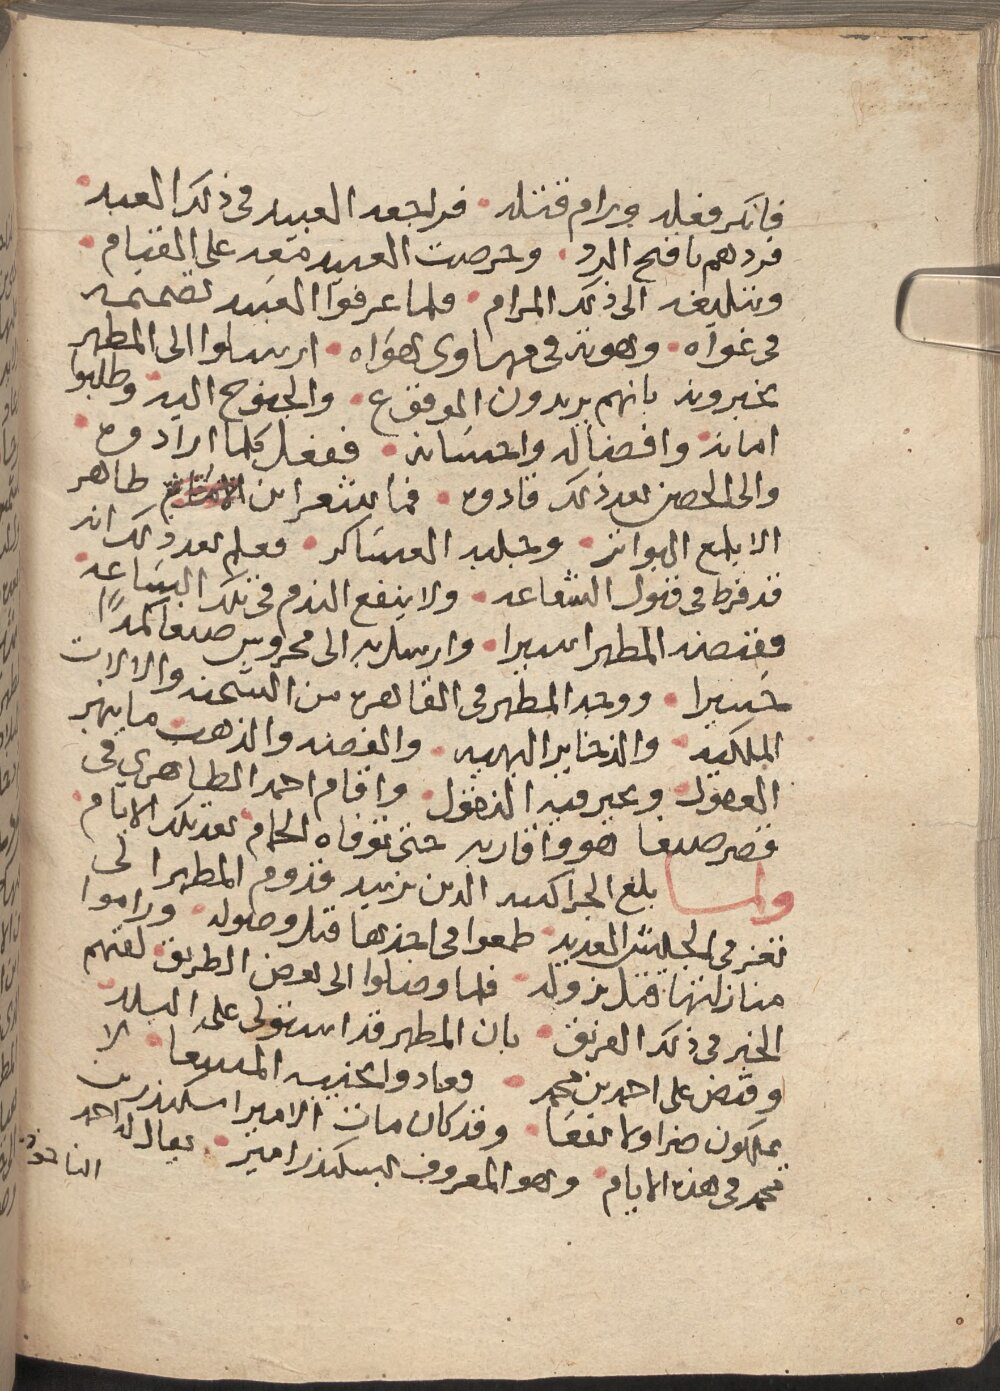 فانكر فعله ورام قتله. فراجعه العبيد في ذلك العبد.
فردهم باقبح الرد. وحرصت العبيد معه على القيام.
وتبليغه الى ذلك المرام. فلما عرفوا العبيد تصميمه
في غواه. وهويه في مهاوى هواه. ارسلوا الى المطهر
يخبرونه بانهم يريدون الوقوع. والجنوح اليه. وطلبوا
امانه وافضاله واحسانه. ففعل كلما ارادوه.
والى الحصن بعد ذلك قادوه. فما شعر ابن طاهر
الا بلمع البواتر. وجلبه العساكر. فعلم بعد ذلك انه
قد فرط في قبول الشفاعه. ولا ينفع الندم في تلك الساعه.
فقبضه المطهر اسيرا. وارسل به الى محروس صنعا كمدًا
حسيرا. ووجد المطهر في القاهره من الشحنه والالات
الملكيه. والذخاير البهيه. والفضه والذهب ما يبهر
العقول. ويحير فيه النقول. واقام احمد الطاهري في
قصر صنعا هو واقاربه حتى توفاه الحمام بعد تلك الايام.
ولما بلغ الجراكسه الذين بزبيد قدوم المطهر الى
تعز في الجيش العديد. طمعوا في اخذها قبل وصوله. وراموا
منازلتها قبل نزوله. فلما وصلوا الى بعض الطريق لقيهم
الخبر في ذلك الفريق. بان المطهر قد استولى على البلد.
وقبض على احمد بن محمد. فعادوا بخيبه المسعا. لا
يملكون ضرا ولا نفعا. وقد كان مات الامير اسكندر بن
محمد في هذه الايام. وهو المعروف باسكندر اميز. يقال له احمد
الناخوذه